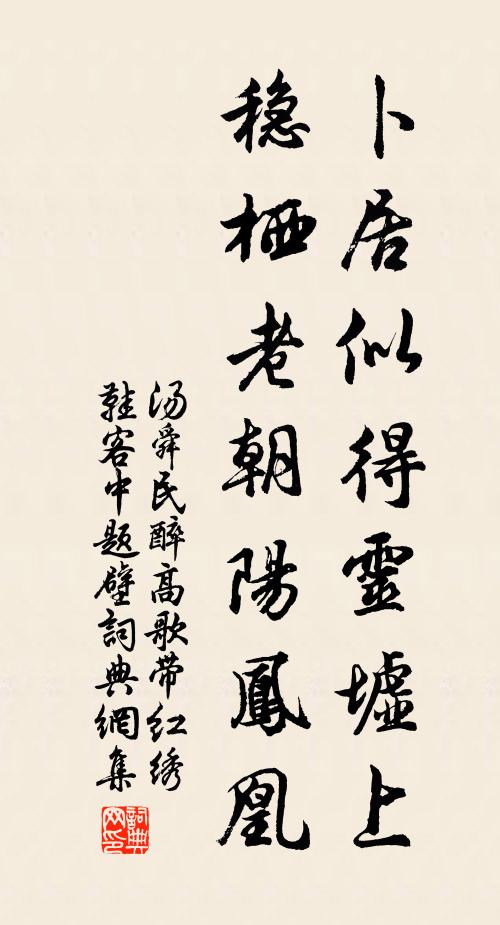 卜居似得靈墟上
稳栖老朝陽鳳凰
汤舜民醉高歌带红绣
鞋客中题壁詞典網集
詞典
网印